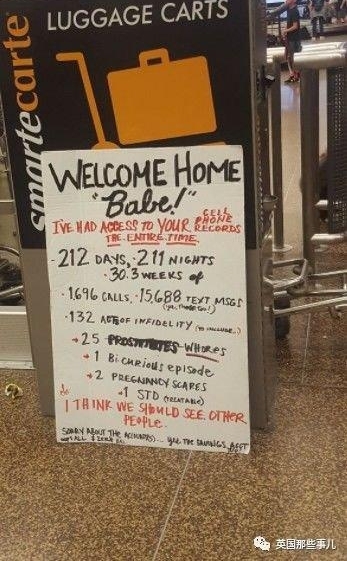 LUGGAGE CARTS
smartecarte
WELCOME HOME
"Babe!"
I'VE HAD ACCESS TO YOUR CELL PHONE RECORDS
THE ENTIRE TIME.
212 DAYS, 211 NIGHTS
30.3 WEEKS of
1,696 CALLS, 15,688 TEXT MSGS
132 ACTS OF INFIDELITY (TO INCLUDE..)
25 PROSTITUTES WHORES
1 Bi-curious episode
2 PREGNANCY SCARES
1 STD (TREATABLE)
I THINK WE SHOULD SEE OTHER
PEOPLE.
SORRY ABOUT THE ACCOUNTS)... THE SAVINGS ACCT
英国那些事儿